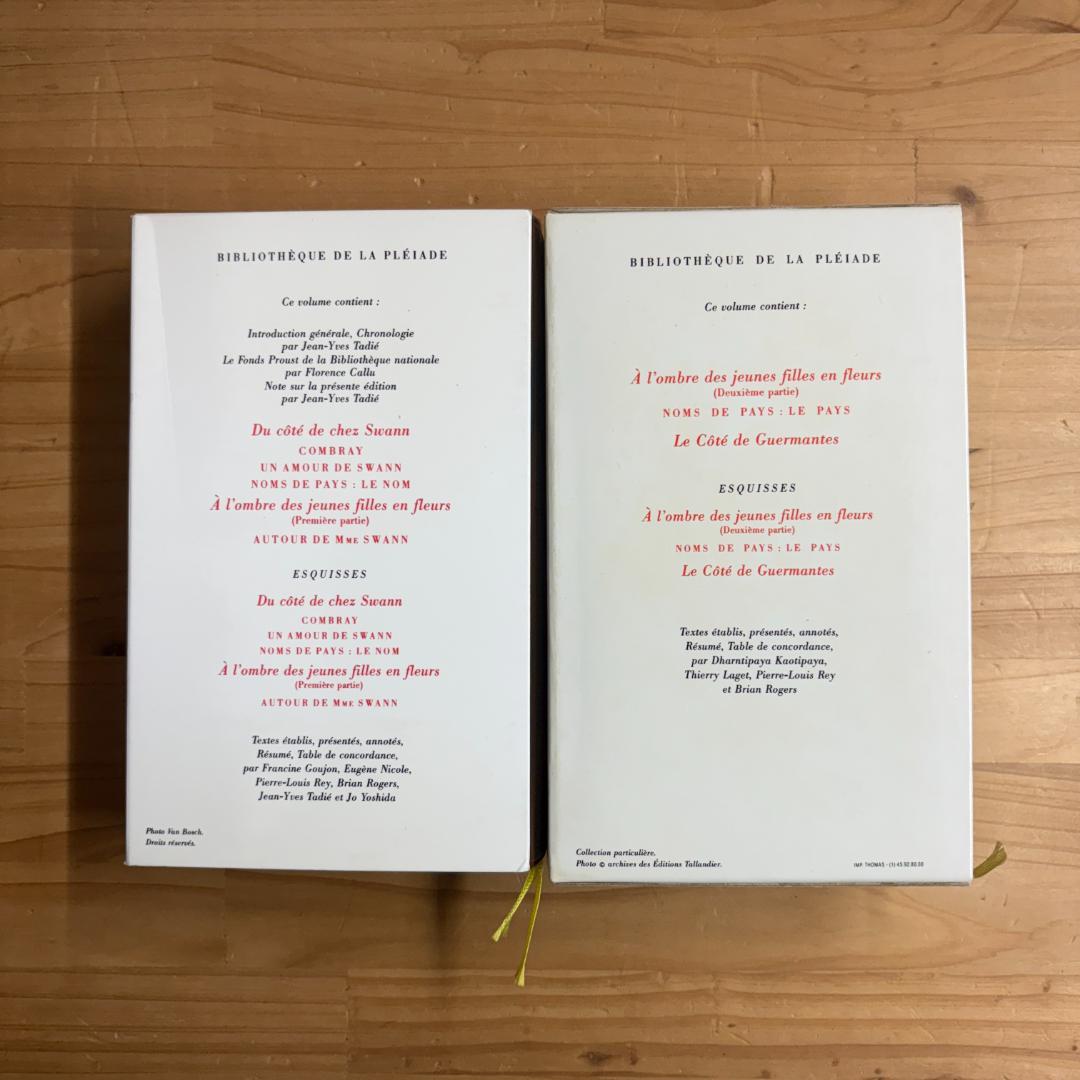 BIBLIOTHÈQUE DE LA PLÉIADE
Ce volume contient :
Introduction générale, Chronologie
par Jean-Yves Tadié
Le Fonds Proust de la Bibliothèque nationale
par Florence Callu
Note sur la présente édition
par Jean-Yves Tadié
Du côté de chez Swann
COMBRAY
UN AMOUR DE SWANN
NOMS DE PAYS : LE NOM
À l'ombre des jeunes filles en fleurs
(Première partie)
AUTOUR DE MME SWANN
ESQUISSES
Du côté de chez Swann
COMBRAY
UN AMOUR DE SWANN
NOMS DE PAYS : LE NOM
À l'ombre des jeunes filles en fleurs
(Première partie)
AUTOUR DE MME SWANN
Textes établis, présentés, annotés,
Résumé, Table de concordance,
par Francine Goujon, Eugène Nicole,
Pierre-Louis Rey, Brian Rogers,
Jean-Yves Tadié et Jo Yoshida
Photo Van Bosch.
Droits réservés.
BIBLIOTHÈQUE DE LA PLÉIADE
Ce volume contient :
À l'ombre des jeunes filles en fleurs
(Deuxième partie)
NOMS DE PAYS : LE PAYS
Le Côté de Guermantes
ESQUISSES
À l'ombre des jeunes filles en fleurs
(Deuxième partie)
NOMS DE PAYS : LE PAYS
Le Côté de Guermantes
Textes établis, présentés, annotés,
Résumé, Table de concordance,
par Dharntipaya Kaotipaya,
Thierry Laget, Pierre-Louis Rey
et Brian Rogers
Collection particulière.
Photo © archives des Éditions Tallandier.
IMP. THOMAS - (1) 45.92.80.30